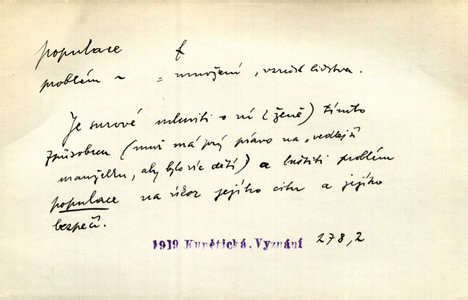 populace f
problém ~ = množení, vzrůst lidstva.
Je surové mluviti o ní (ženě) tímto
způsobem (muž má prý právo na „vedlejší
manželku, aby bylo více dětí) a luštiti problém
populace na úkor jejího citu a jejího
bezpečí.
1919 Kunětická. Vyznání 278,2